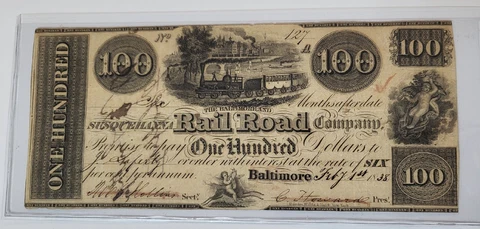 No 127 A
100 100 100
ONE HUNDRED
THE BALTIMORE AND
Months after date
SUSQUEHANNA Rail Road Company,
Promises to pay One Hundred Dollars to
or order with interest at the rate of SIX
per cent per annum
Baltimore Feby 1st 1838
Secty. C Howard Prest.
100